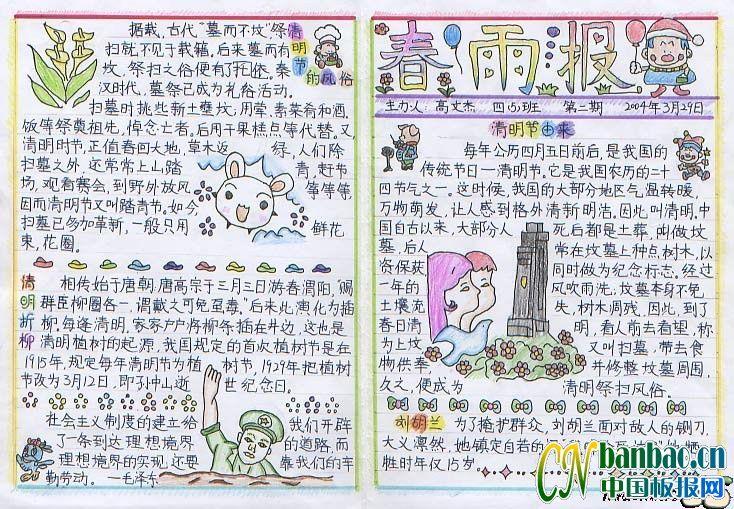 据载,古代"墓而不坟"祭
扫就不见于载籍,后来墓而有
坟,祭扫之俗便有了托依,秦
汉时代,墓祭已成为礼俗活动。
清明节的风俗
扫墓时挑些新土壅坟;用荤、素菜肴和酒、
饭等祭奠祖先,悼念亡者。后用干果糕点等代替。又
清明时节,正值春回大地,草木返绿,人们除
扫墓之外,还常常上山踏青,赶节
场,观看赛会,到野外放风筝等等,
因而清明节又叫踏青节。如今,
扫墓已多加革新,一般只用鲜花
束,花圈。
清明折柳
相传始于唐朝,唐高宗于三月三日游春渭阳,"赐
群臣柳圈各一,谓戴之可免虿毒。"后来此演化为插
柳,每逢清明,家家户户将柳条插在斗边,这也是
清明植树的起源,我国规定的首次植树节是在
1915年,规定每年清明节为植树节,1929年把植树
节改为3月12日,即孙中山逝世纪念日。
社会主义制度的建立给我们开辟
了一条到达理想境界的道路,而
理想境界的实现,还要靠我们的辛
勤劳动。 —毛泽东
春雨报
主办人:高文杰 四(5)班 第二期 2009年3月29日
清明节由来
每年公历四月五日前后,是我国的
传统节日—清明节。它是我国农历的二十
四节气之一。这时候,我国的大部分地区气温转暖,
万物萌发,让人感到格外清新明洁。因此叫清明。中
国自古以来,大部分人死后都是土葬,叫做坟
墓,后人常在坟墓上种点树木,以
资保获同时做为纪念标志。经过
一年的风吹雨洗,坟墓本身不免
土壤流失,树木凋残,因此,到了
春日清明,着人前去看望,称
为上坟又叫扫墓,带去食
物供奉,并修整坟墓周围,
久之,便成为清明祭扫风俗。
刘胡兰
为了掩护群众,刘胡兰面对敌人的铡刀,
大义凛然,她镇定自若的
牲时年仅15岁。
CN banbao.cn
中国板报网